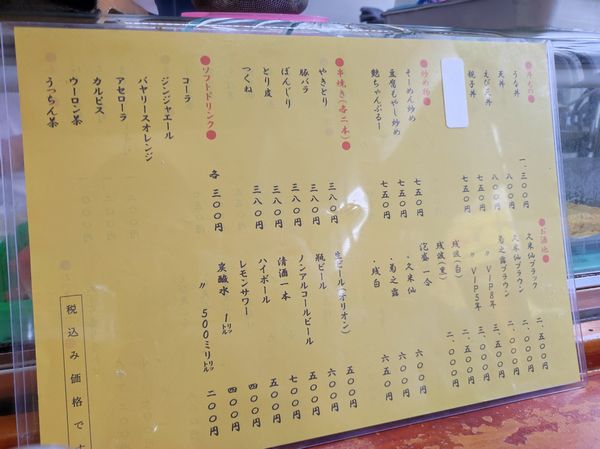 ●丼もの●
うな丼 一、三〇〇円
天丼 八〇〇円
えび天丼 八〇〇円
親子丼 七五〇円
七五〇円
●炒め物●
そーめん炒め 七五〇円
豆腐もやし炒め 七五〇円
麩ちゃんぷるー 七五〇円
●串焼き(各二本)●
やきとり 三八〇円
豚バラ 三八〇円
ぼんじり 三八〇円
とり皮 三八〇円
つくね 三八〇円
●ソフトドリンク● 各 三〇〇円
コーラ
ジンジャエール
バヤリースオレンジ
アセローラ
カルピス
ウーロン茶
うっちん茶
●お酒他●
久米仙ブラック 二、五〇〇円
久米仙ブラウン 二、〇〇〇円
菊之露ブラウン 二、〇〇〇円
〃 VIP8年 三、五〇〇円
〃 VIP5年 二、五〇〇円
残波(白)
残波(黒) 二、〇〇〇円
泡盛 一合
・久米仙 六〇〇円
・菊之露 六〇〇円
・残白 六五〇円
生ビール(オリオン) 五〇〇円
瓶ビール 六〇〇円
ノンアルコールビール 五〇〇円
清酒一本 七〇〇円
ハイボール 五〇〇円
レモンサワー 四〇〇円
炭酸水 1リットル 四〇〇円
〃 500ミリリットル 二〇〇円
税込み価格です